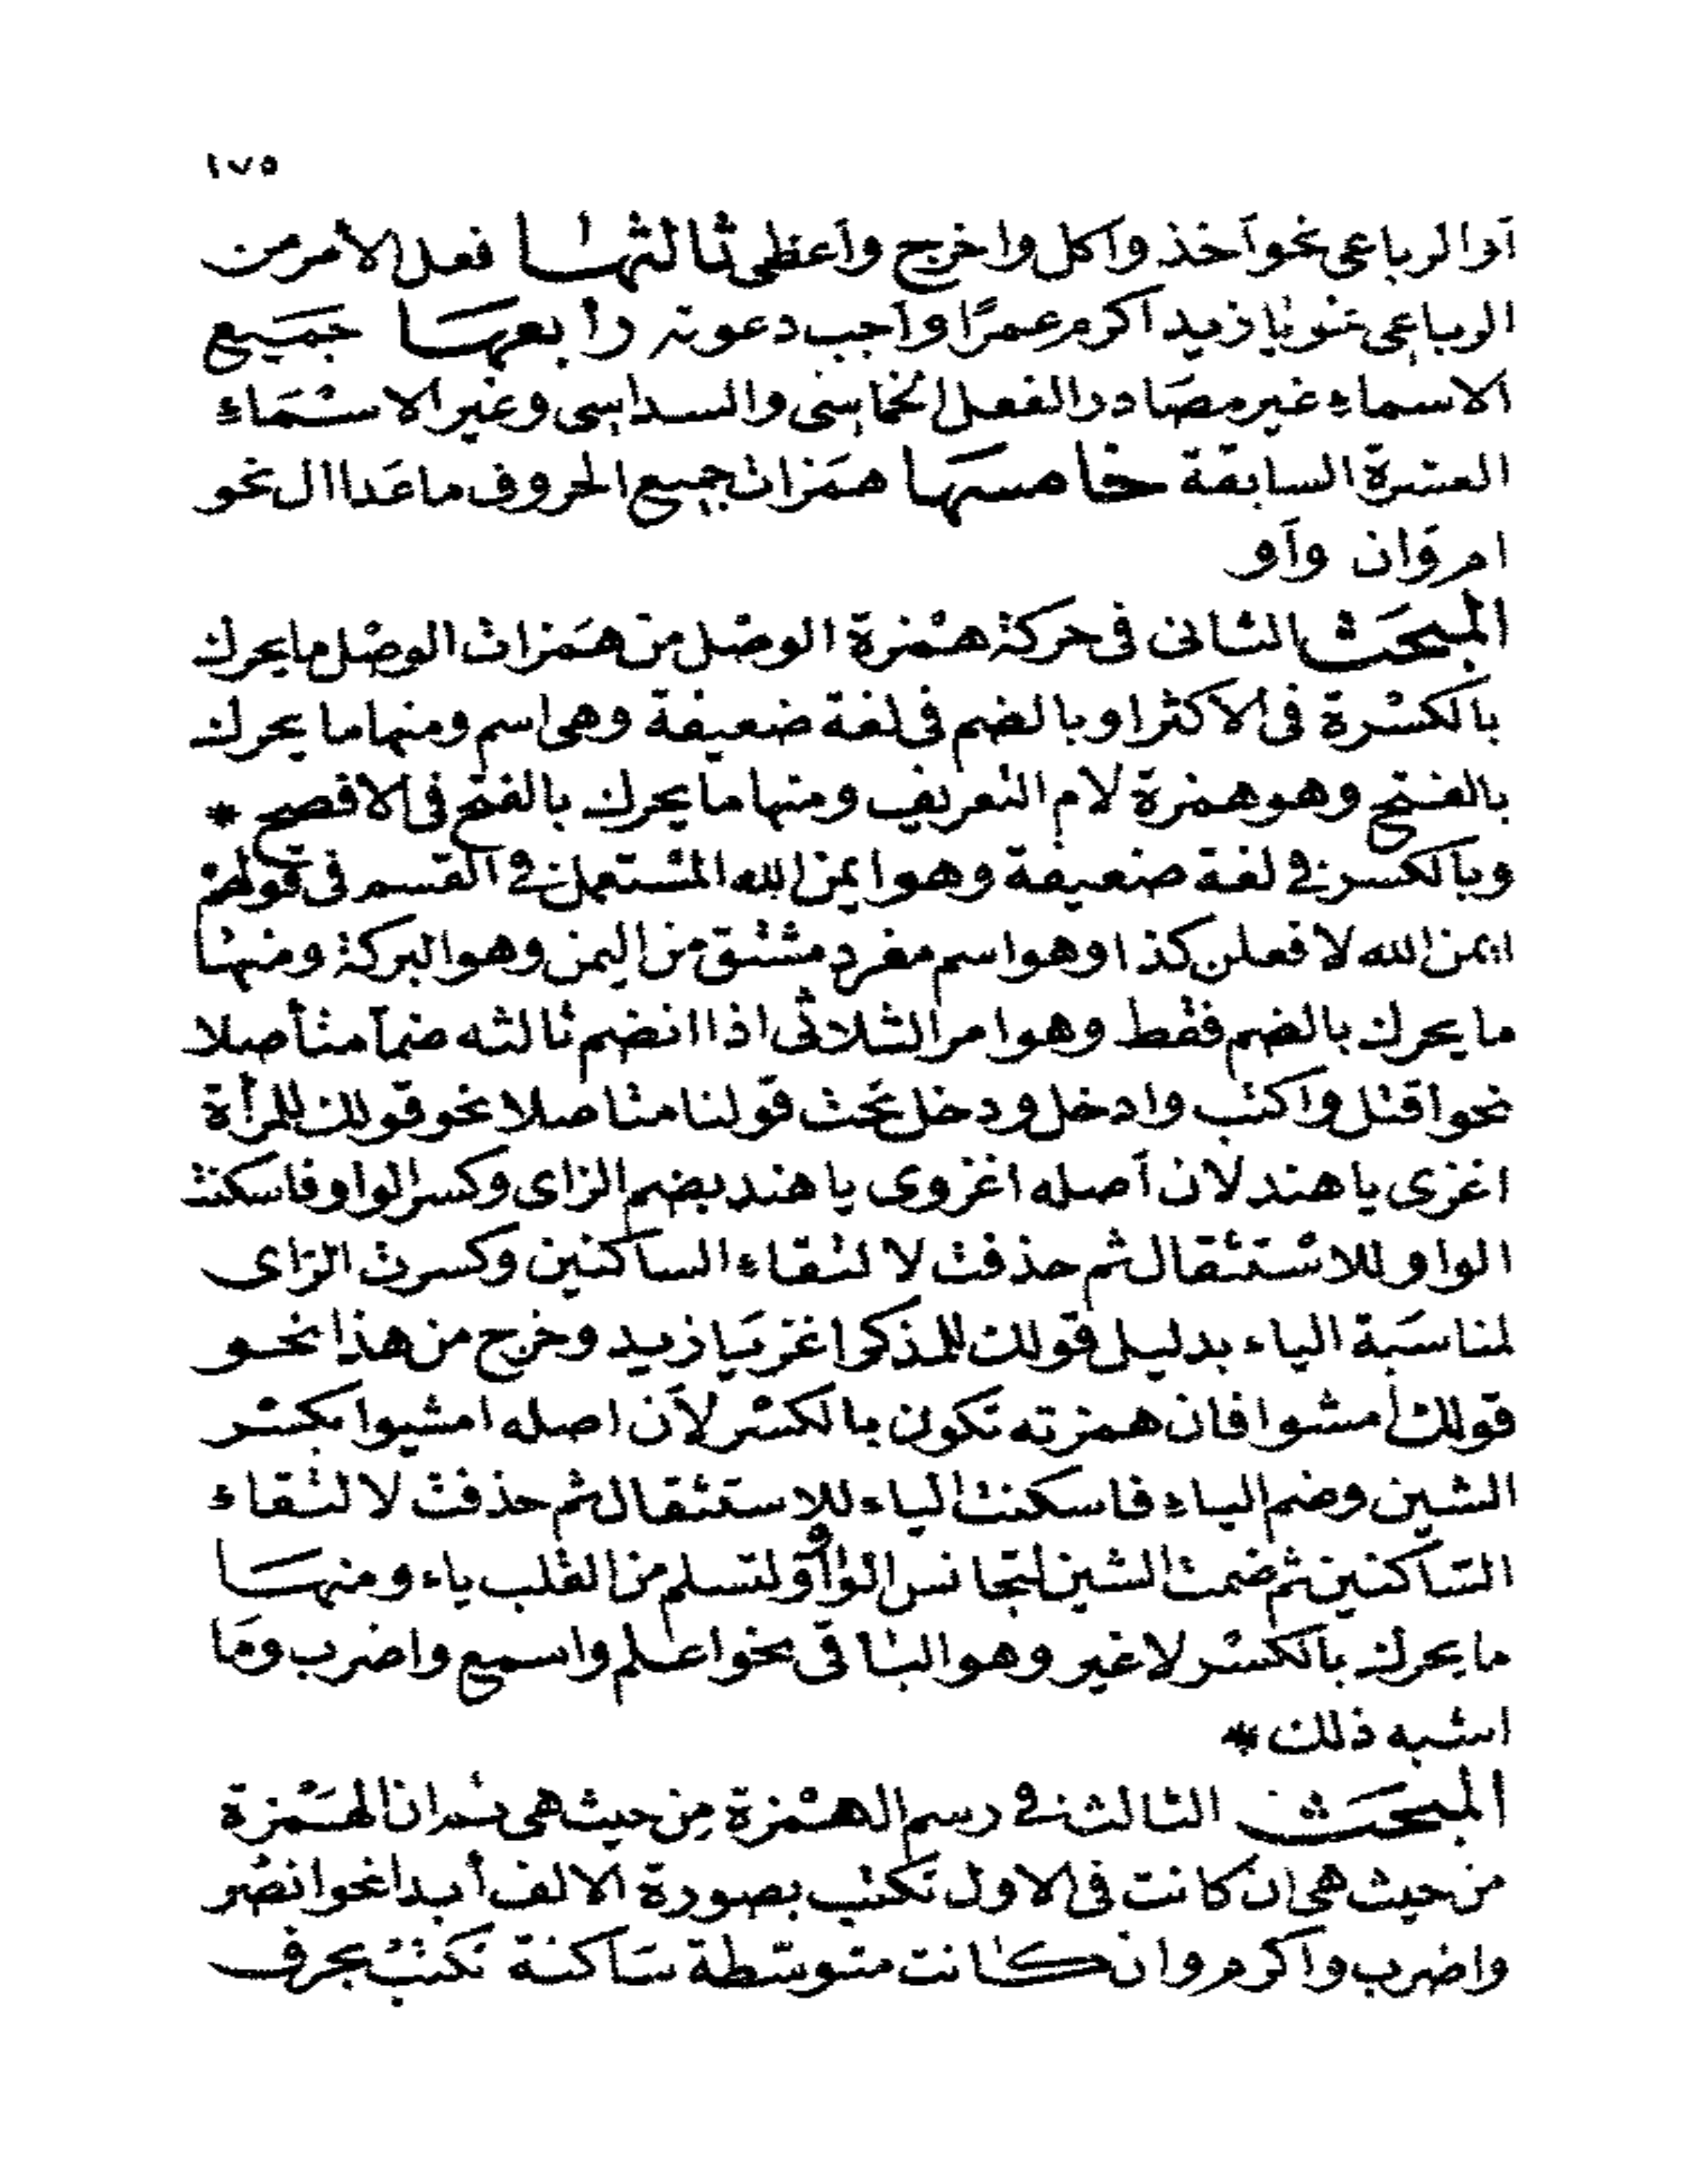 ١٧٥
أو الرباعى نحو أخذ وأكل واخرج وأعطى ثالثها فعل الأمر من
الرباعى نحو يا زيد أكرم عمرًا وأجب دعوته رابعها جميع
الاسماء غير مصادر الفعل الخماسى والسداسى وغير الاسماء
العشرة السابقة خامسها همزات جميع الحروف ما عدا ال نحو
ام وان وأو
المبحث الثانى فى حركة همزة الوصل من همزات الوصل ما يحرك
بالكسرة فى الاكثر او بالضم فى لغة ضعيفة وهى اسم ومنها ما يحرك
بالفتح وهو همزة لام التعريف ومنها ما يحرك بالفتح فى الافصح *
وبالكسر فى لغة ضعيفة وهو ايمن الله المستعمل فى القسم فى قولهم
ايمن الله لافعلن كذا وهو اسم مفرد مشتق من اليمن وهو البركة ومنها
ما يحرك بالضم فقط وهو امر الثلاثى اذا انضم ثالثه ضماً متأصلا
نحو اقتل واكتب وادخل ودخل تحت قولنا متاصلا نحو قولك للمرأة
اغزى يا هند لان أصله اغزوى يا هند بضم الزاى وكسر الواو فاسكنت
الواو للاستثقال ثم حذفت لالتقاء الساكنين وكسرت الزاى
لمناسبة الياء بدليل قولك للمذكر اغز يا زيد وخرج من هذا نحو
قولك امشوا فان همزته تكون بالكسر لأن اصله امشيوا بكسر
الشين وضم الياء فاسكنت الياء للاستثقال ثم حذفت لالتقاء
الساكنين ثم ضمت الشين لتجانس الواو أو لتسلم من القلب ياء ومنها
ما يحرك بالكسر لا غير وهو الباقى نحو اعلم واسمع واضرب وما
اشبه ذلك *
المبحث الثالث فى رسم الهمزة من حيث هى ان الهمزة
من حيث هى ان كانت فى الاول تكتب بصورة الالف أبدا نحو انصر
واضرب واكرم وان كانت متوسطة ساكنة تكتب بحرف